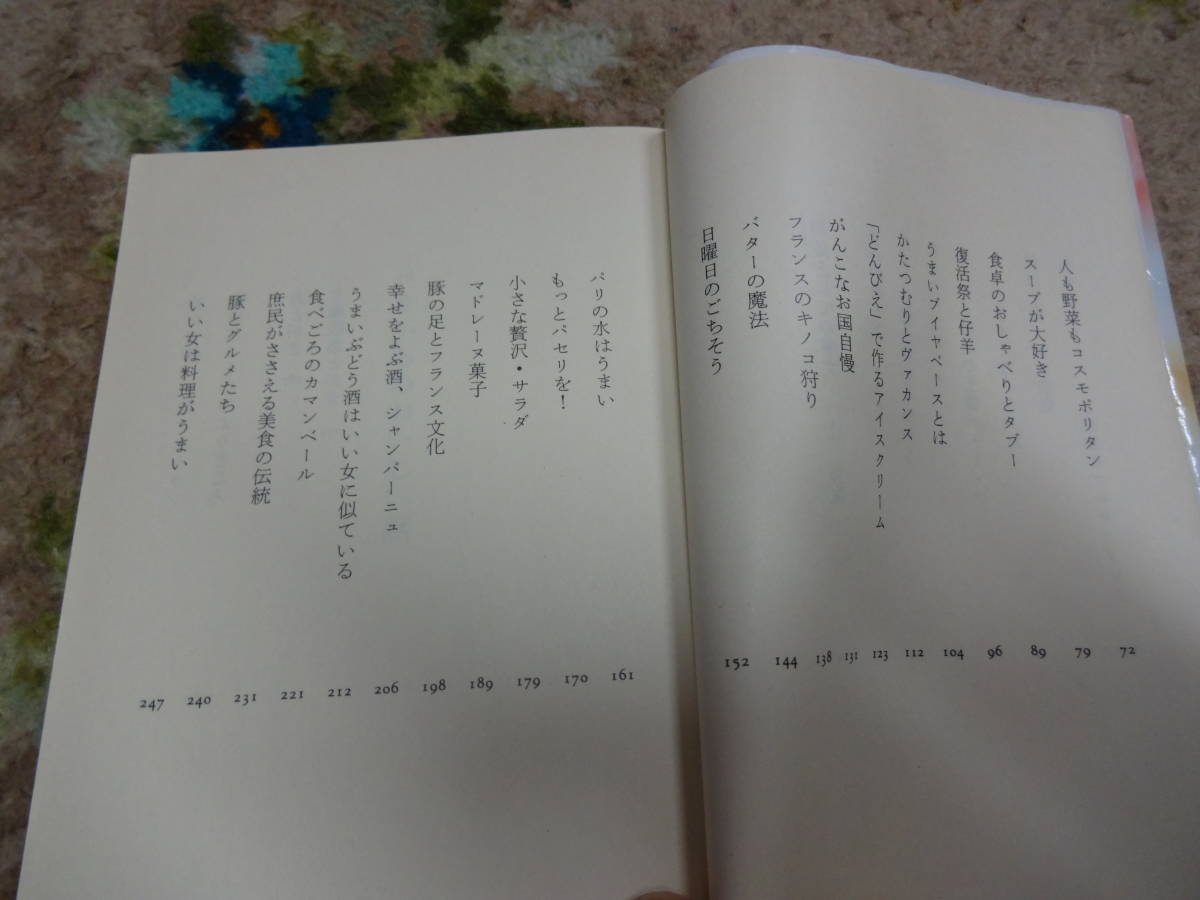 人も野菜もコスモポリタン 72
スープが大好き 79
食卓のおしゃべりとタブー 89
復活祭と仔羊 96
うまいブイヤベースとは 104
かたつむりとヴァカンス 112
「どんびえ」で作るアイスクリーム 123
がんこなお国自慢 131
フランスのキノコ狩り 138
バターの魔法 144
日曜日のごちそう 152
パリの水はうまい 161
もっとパセリを！ 170
小さな贅沢・サラダ 179
マドレーヌ菓子 189
豚の足とフランス文化 198
幸せをよぶ酒、シャンパーニュ 206
うまいぶどう酒はいい女に似ている 212
食べごろのカマンベール 221
庶民がささえる美食の伝統 231
豚とグルメたち 240
いい女は料理がうまい 247